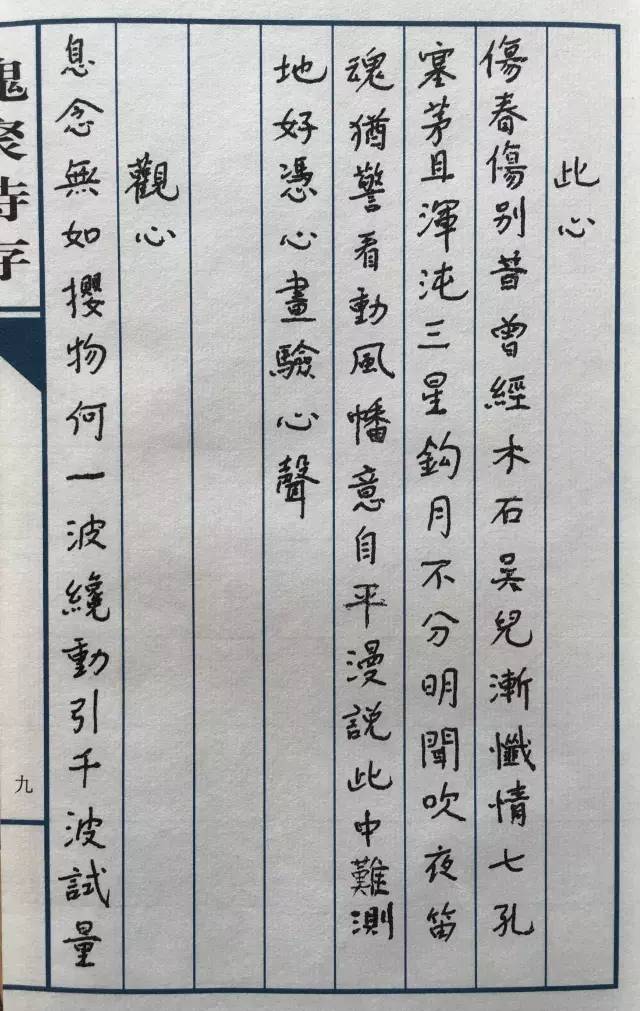 此心
傷春傷別昔曾經木石吳兒漸懺情七孔
塞茅且渾沌三星鈎月不分明聞吹夜笛
魂猶警看動風幡意自平漫説此中難測
地好憑心畫驗心聲
觀心
息念無如攖物何一波纔動引千波試量
九